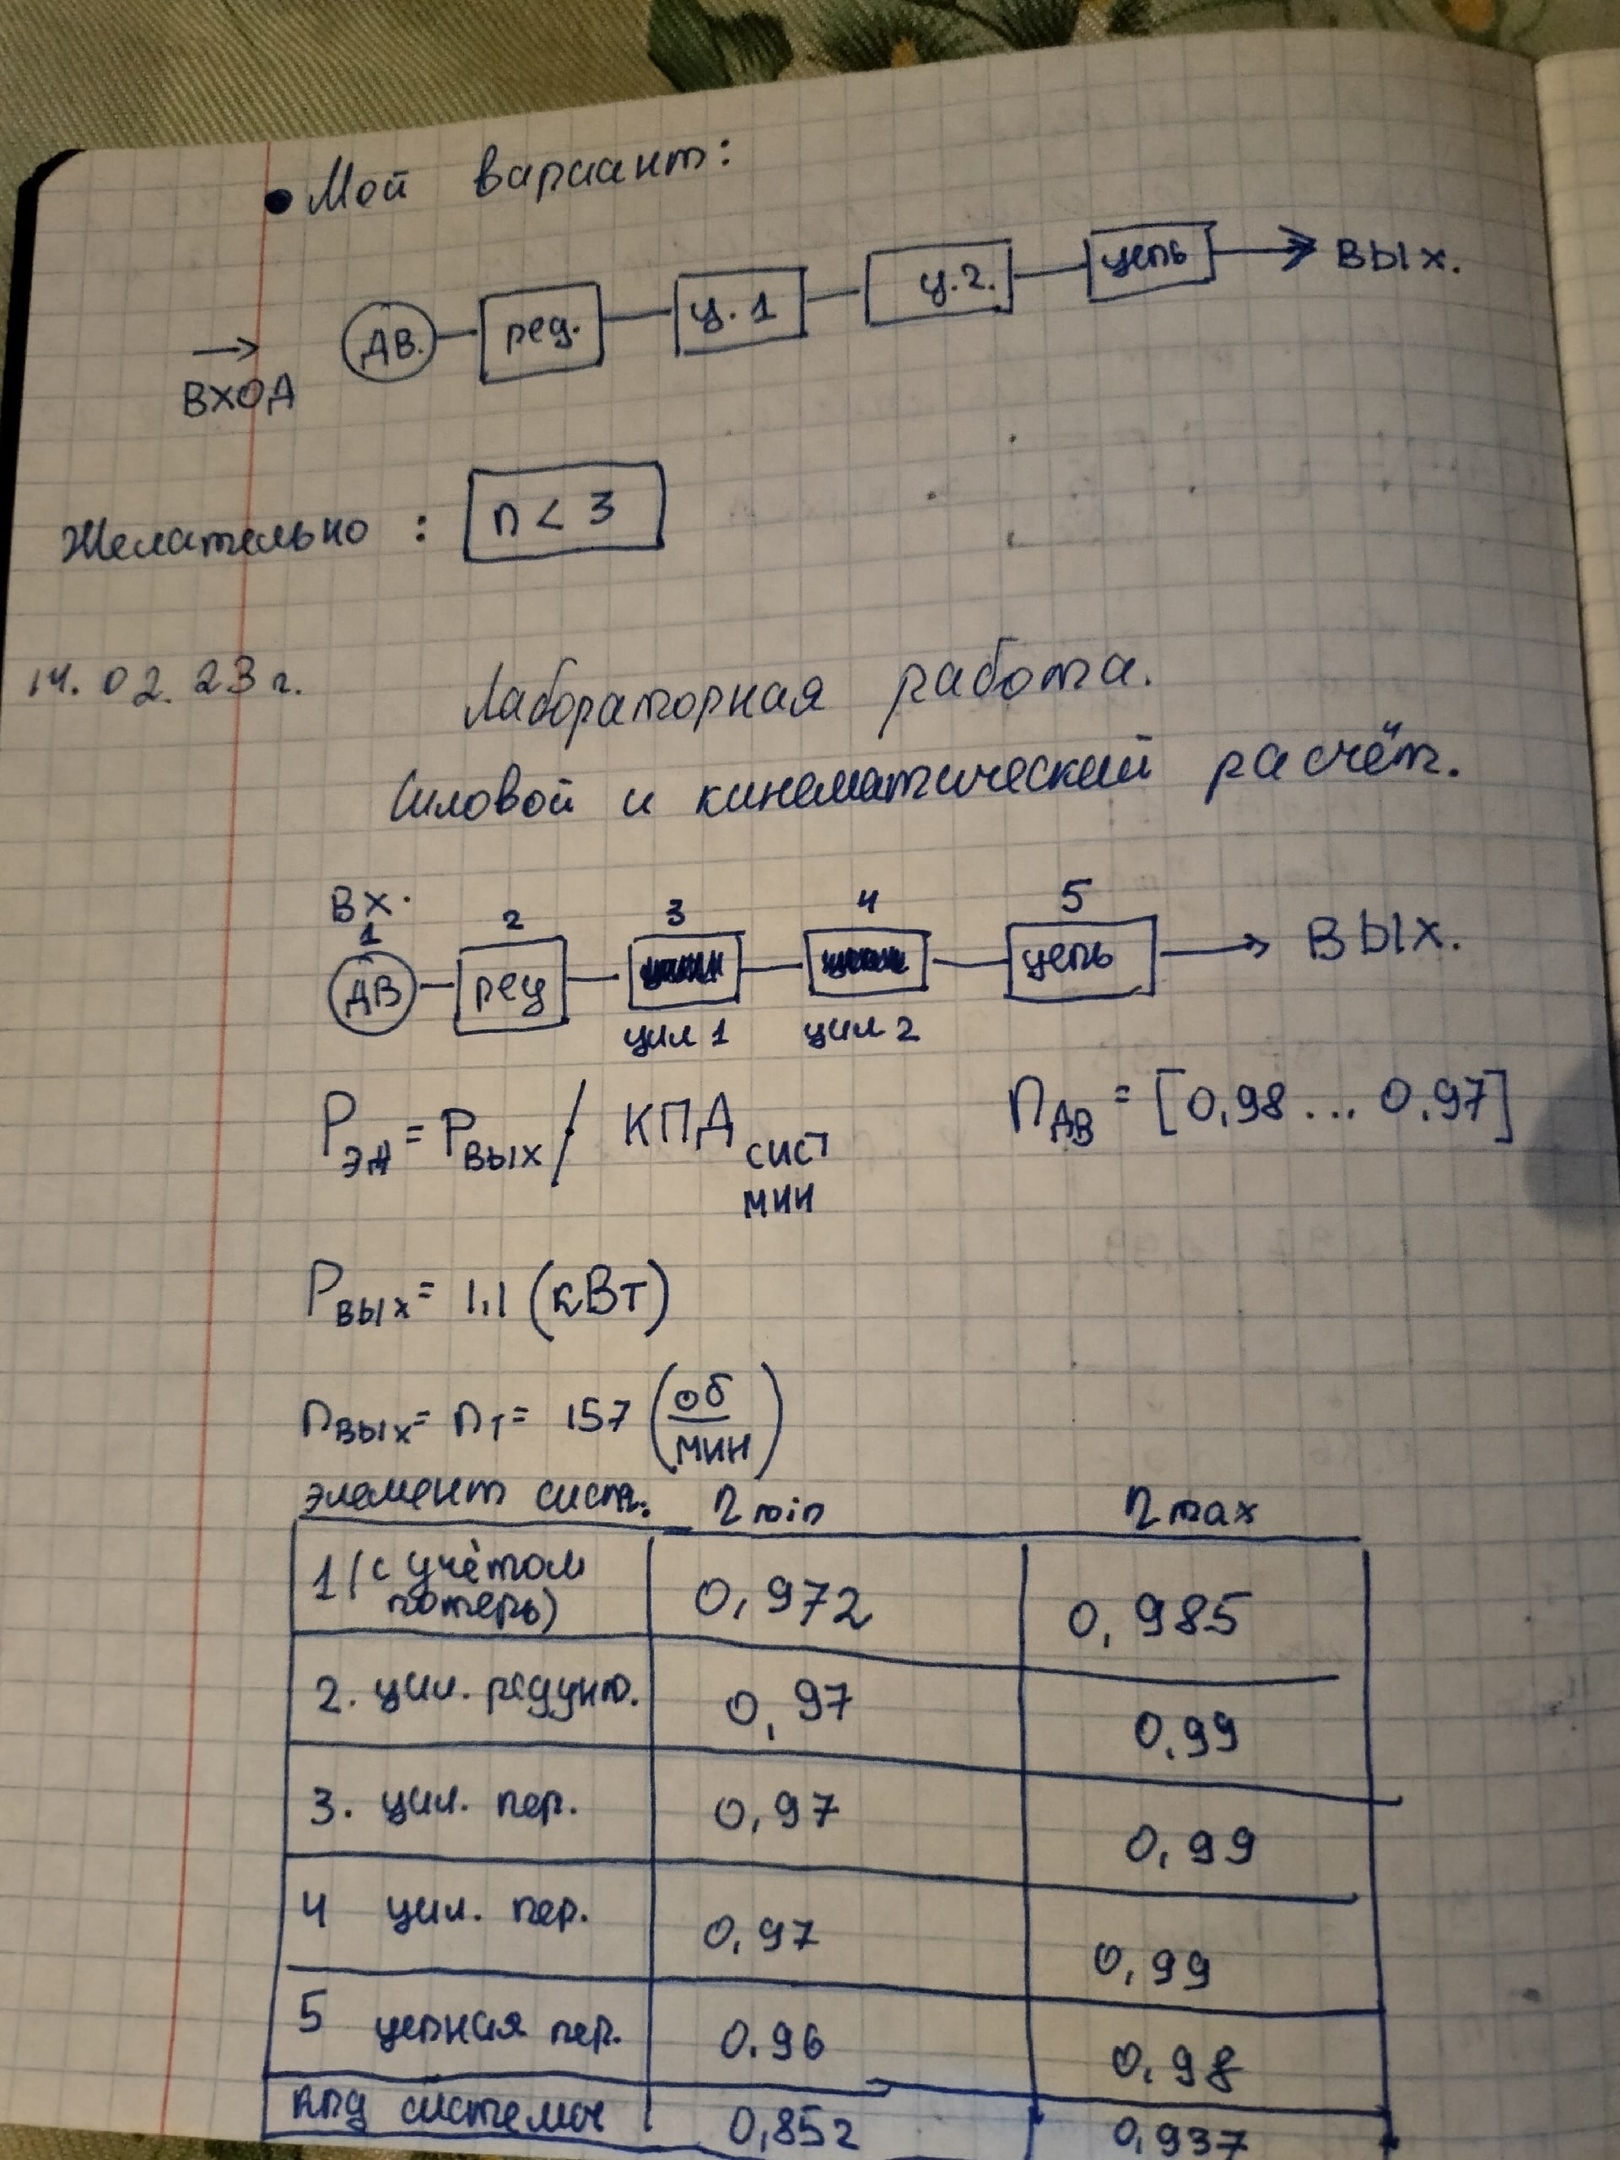 • Мой вариант:
ВХОД → ДВ. ред. ц. 1 ц. 2. цепь ВЫХ.
Желательно: n < 3
14.02.23г.
Лабораторная работа.
Силовой и кинематический расчёт.
ВХ.
1 2 3 4 5
ДВ ред цепь ВЫХ.
цил 1 цил 2
Pэд = Pвых / КПД сист мин
nдв = [0,98 ... 0.97]
Pвых = 1,1 (кВт)
nвых = nт = 157 (об/мин)
элемент сист. η min η max
1 (с учётом потерь) 0,972 0,985
2. цил. редукт. 0,97 0.99
3. цил. пер. 0,97 0,99
4 цил. пер. 0,97 0,99
5 цепная пер. 0.96 0.98
кпд системы 0,852 0,937